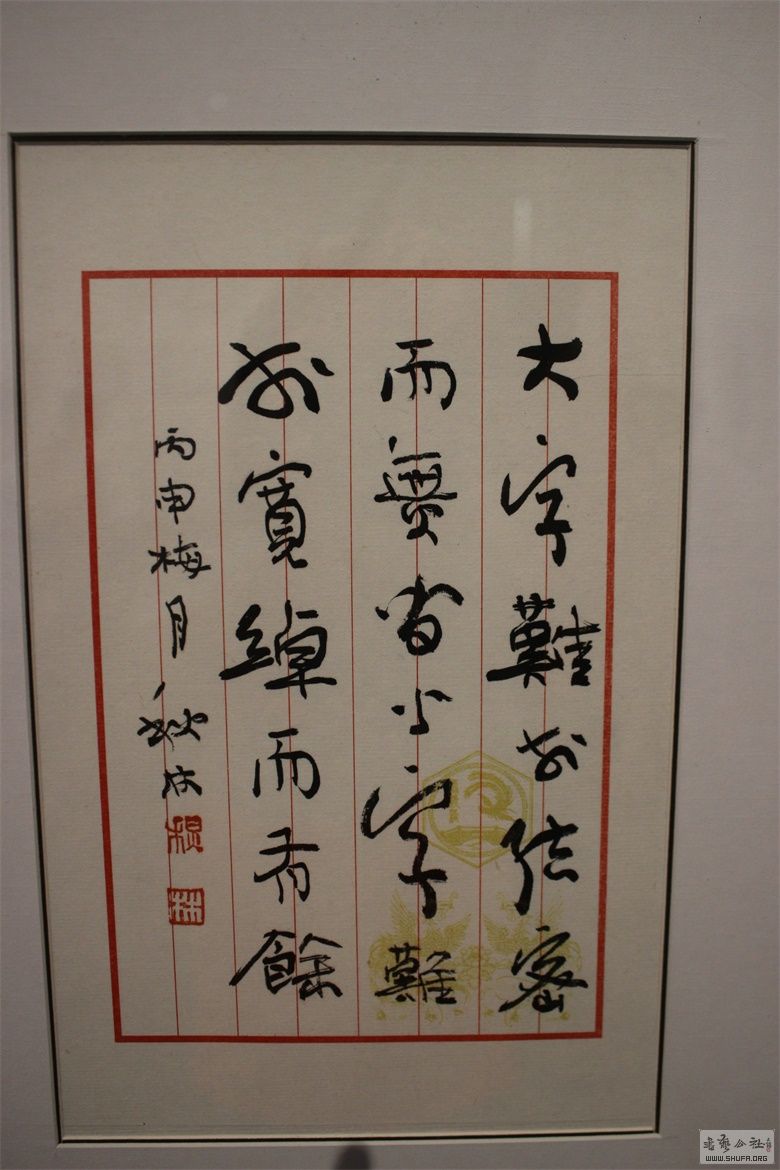 大字難於結密
而無間小字難
於寬綽而有餘
丙申梅月秋
書藝公社
WWW.SHUFA.ORG